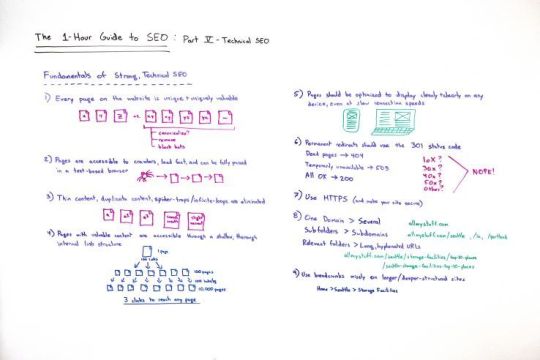 The 1-Hour Guide to SEO: Part V - Technical SEO
Fundamentals of Strong, Technical SEO
1) Every page on the website is unique + uniquely valuable
x y z vs.
canonicalize?
remove
block bots
2) Pages are accessible to crawlers, load fast, and can be fully parsed
in a text-based browser
3) Thin content, duplicate content, spider-traps/infinite-loops are eliminated
4) Pages with valuable content are accessible through a shallow, thorough
internal link structure
1 page
100 links
100 pages
100 links/pg
10,000 pages
3 clicks to reach any page
5) Pages should be optimized to display cleanly + clearly on any
device, even at slow connection speeds
6) Permanent redirects should use the 301 status code
Dead pages → 404
Temporarily unavailable → 503
All OK → 200
10x?
30x?
40x?
50x?
Other?
NOPE!
7) Use HTTPS (and make your site secure)
8) One Domain > Several
allmystuff.com
Subfolders > Subdomains
allmystuff.com/seattle, /la, /portland
Relevant folders > Long, hyphenated URLs
allmystuff.com/seattle/storage-facilities/top-10-places
/seattle-storage-facilities-top-10-places
9) Use breadcrumbs wisely on larger/deeper-structured sites
Home > Seattle > Storage Facilities